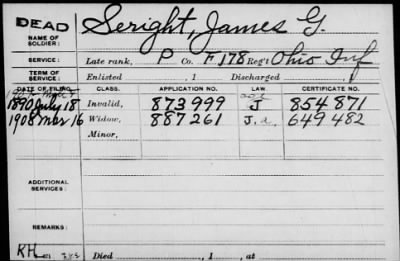 DEAD
NAME OF SOLDIER: Seright, James G.
SERVICE: Late rank, P Co. F 178 Reg't Ohio Inf
TERM OF SERVICE: Enlisted , 1 Discharged , 1
DATE OF FILING. CLASS. APPLICATION NO. LAW. CERTIFICATE NO.
1890 July 18 Invalid, 873999 J 854871
1908 Mar 16 Widow, 887261 J.a. 649482
Minor,
ADDITIONAL SERVICES:
REMARKS:
KH Died , 1 , at